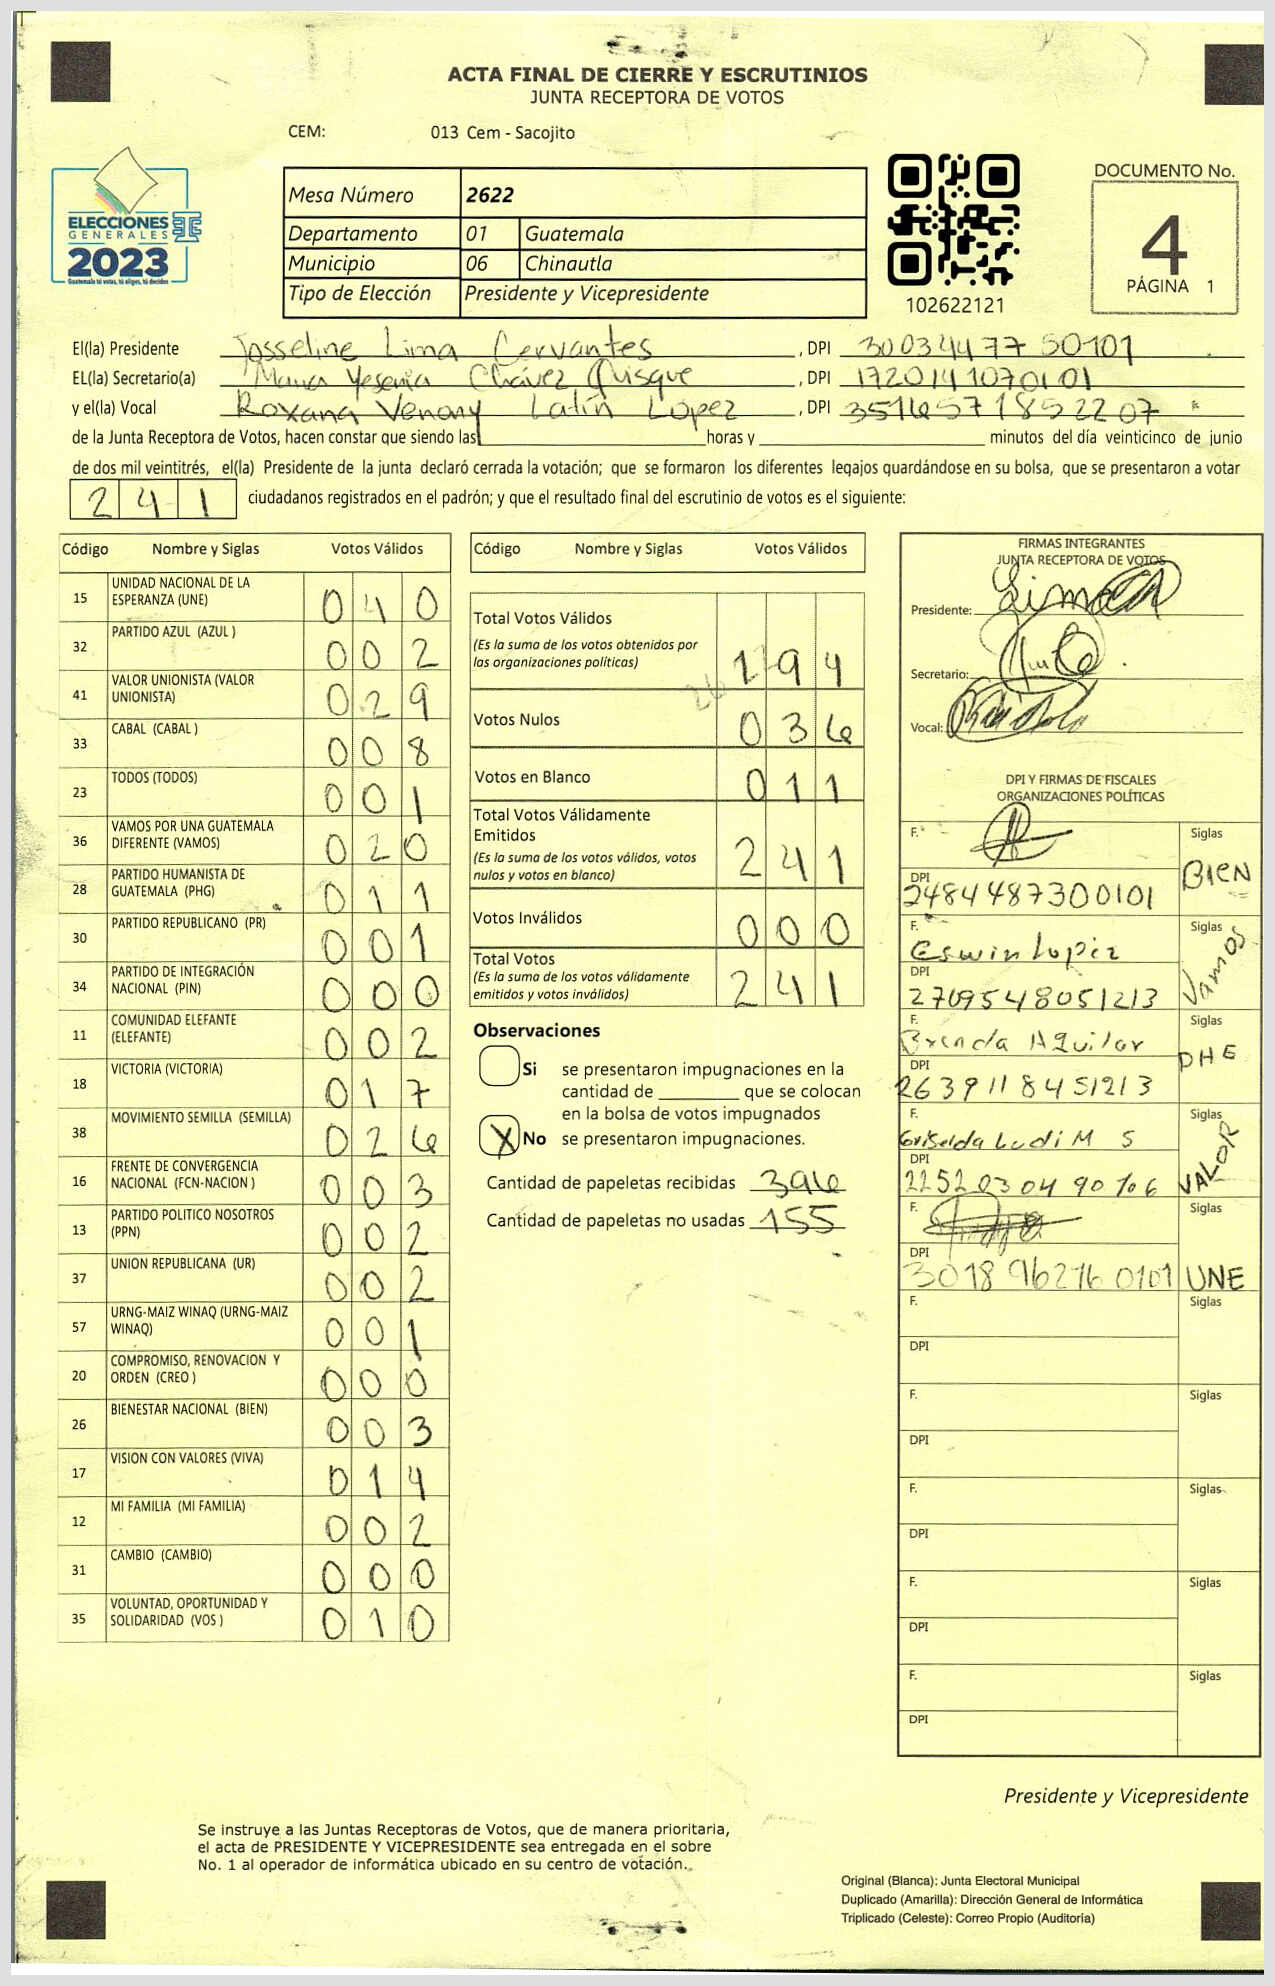 ACTA FINAL DE CIERRE Y ESCRUTINIOS
JUNTA RECEPTORA DE VOTOS
CEM: 013 Cem - Sacojito
ELECCIONES
GENERALES
2023
Guatemala tú votas, tú eliges, tú decides
Mesa Número 2622
Departamento 01 Guatemala
Municipio 06 Chinautla
Tipo de Elección Presidente y Vicepresidente
102622121
DOCUMENTO No.
4
PÁGINA 1
El(la) Presidente Josseline Lima Cervantes, DPI 3003447750101
EL(la) Secretario(a) Maria Yesenia Chávez, DPI 1720141070101
y el(la) Vocal Roxana Latín López, DPI 3516571852207
de la Junta Receptora de Votos, hacen constar que siendo las horas y minutos del día veinticinco de junio
de dos mil veintitrés, el(la) Presidente de la junta declaró cerrada la votación; que se formaron los diferentes legajos guardándose en su bolsa, que se presentaron a votar
241 ciudadanos registrados en el padrón; y que el resultado final del escrutinio de votos es el siguiente:
Código Nombre y Siglas Votos Válidos
15 UNIDAD NACIONAL DE LA ESPERANZA (UNE) 040
32 PARTIDO AZUL (AZUL ) 002
41 VALOR UNIONISTA (VALOR UNIONISTA) 029
33 CABAL (CABAL ) 008
23 TODOS (TODOS) 001
36 VAMOS POR UNA GUATEMALA DIFERENTE (VAMOS) 020
28 PARTIDO HUMANISTA DE GUATEMALA (PHG) 011
30 PARTIDO REPUBLICANO (PR) 001
34 PARTIDO DE INTEGRACIÓN NACIONAL (PIN) 000
11 COMUNIDAD ELEFANTE (ELEFANTE) 002
18 VICTORIA (VICTORIA) 017
38 MOVIMIENTO SEMILLA (SEMILLA) 026
16 FRENTE DE CONVERGENCIA NACIONAL (FCN-NACION ) 003
13 PARTIDO POLITICO NOSOTROS (PPN) 002
37 UNION REPUBLICANA (UR) 002
57 URNG-MAIZ WINAQ (URNG-MAIZ WINAQ) 001
20 COMPROMISO, RENOVACION Y ORDEN (CREO ) 000
26 BIENESTAR NACIONAL (BIEN) 003
17 VISION CON VALORES (VIVA) 014
12 MI FAMILIA (MI FAMILIA) 002
31 CAMBIO (CAMBIO) 000
35 VOLUNTAD, OPORTUNIDAD Y SOLIDARIDAD (VOS ) 010
Código Nombre y Siglas Votos Válidos
Total Votos Válidos
(Es la suma de los votos obtenidos por
las organizaciones políticas) 194
Votos Nulos 036
Votos en Blanco 011
Total Votos Válidamente
Emitidos
(Es la suma de los votos válidos, votos
nulos y votos en blanco) 241
Votos Inválidos 000
Total Votos
(Es la suma de los votos válidamente
emitidos y votos inválidos) 241
Observaciones
Si se presentaron impugnaciones en la
cantidad de que se colocan
en la bolsa de votos impugnados
X No se presentaron impugnaciones.
Cantidad de papeletas recibidas 396
Cantidad de papeletas no usadas 155
FIRMAS INTEGRANTES
JUNTA RECEPTORA DE VOTOS
Presidente:
Secretario:
Vocal:
DPI Y FIRMAS DE FISCALES
ORGANIZACIONES POLÍTICAS
F. Siglas
DPI BIEN
2484487300101
F. Eswin Lopez Siglas
DPI Vamos
2709548051213
F. Brenda Aguilar Siglas
DPI PHG
2639118451213
F. Griselda Ludi M S Siglas
DPI VALOR
2252030490706
F. Siglas
DPI
3018962760101 UNE
F. Siglas
DPI
F. Siglas
DPI
F. Siglas
DPI
F. Siglas
DPI
F. Siglas
DPI
Presidente y Vicepresidente
Se instruye a las Juntas Receptoras de Votos, que de manera prioritaria,
el acta de PRESIDENTE Y VICEPRESIDENTE sea entregada en el sobre
No. 1 al operador de informática ubicado en su centro de votación.
Original (Blanca): Junta Electoral Municipal
Duplicado (Amarilla): Dirección General de Informática
Triplicado (Celeste): Correo Propio (Auditoría)